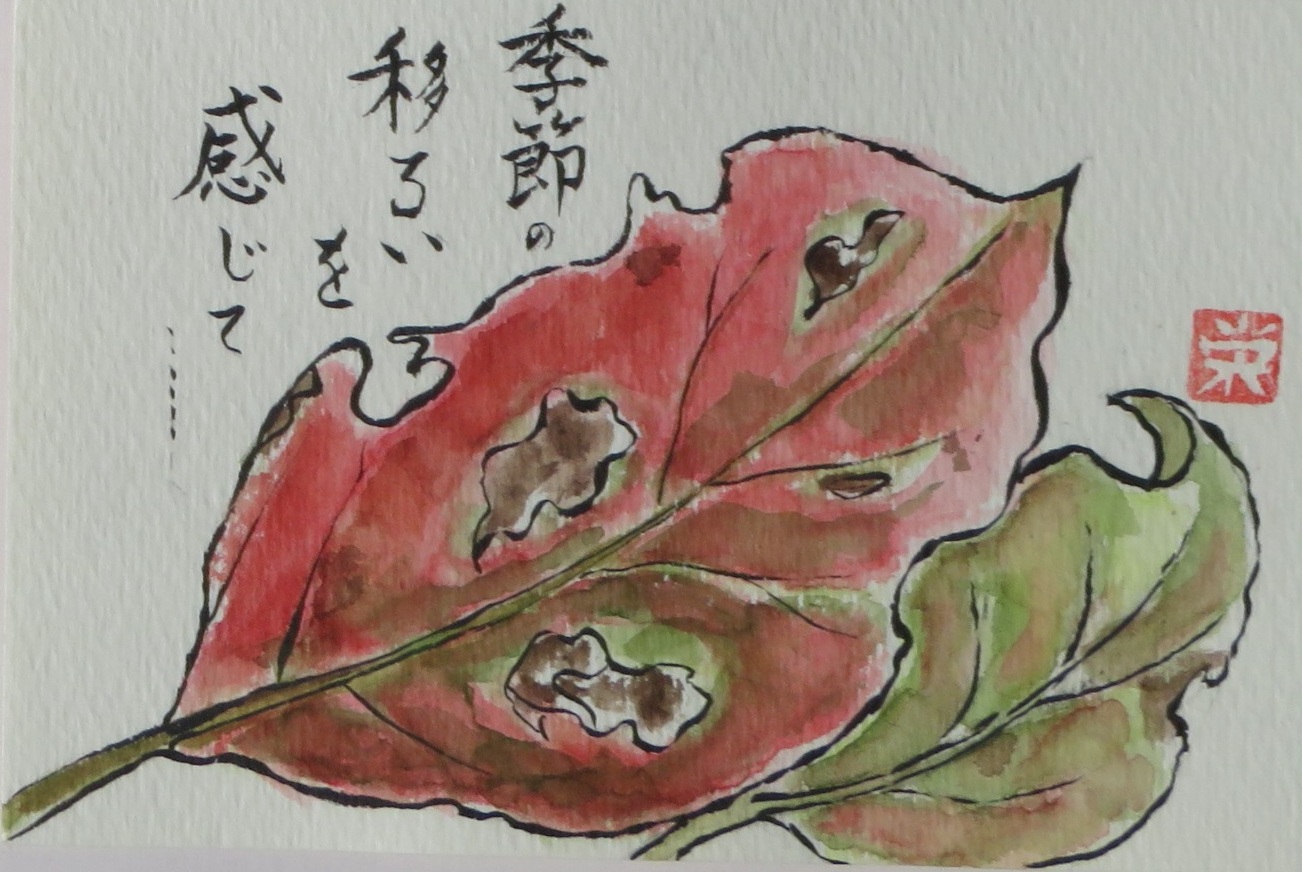 季節の
移ろい
を
感じて……
栄